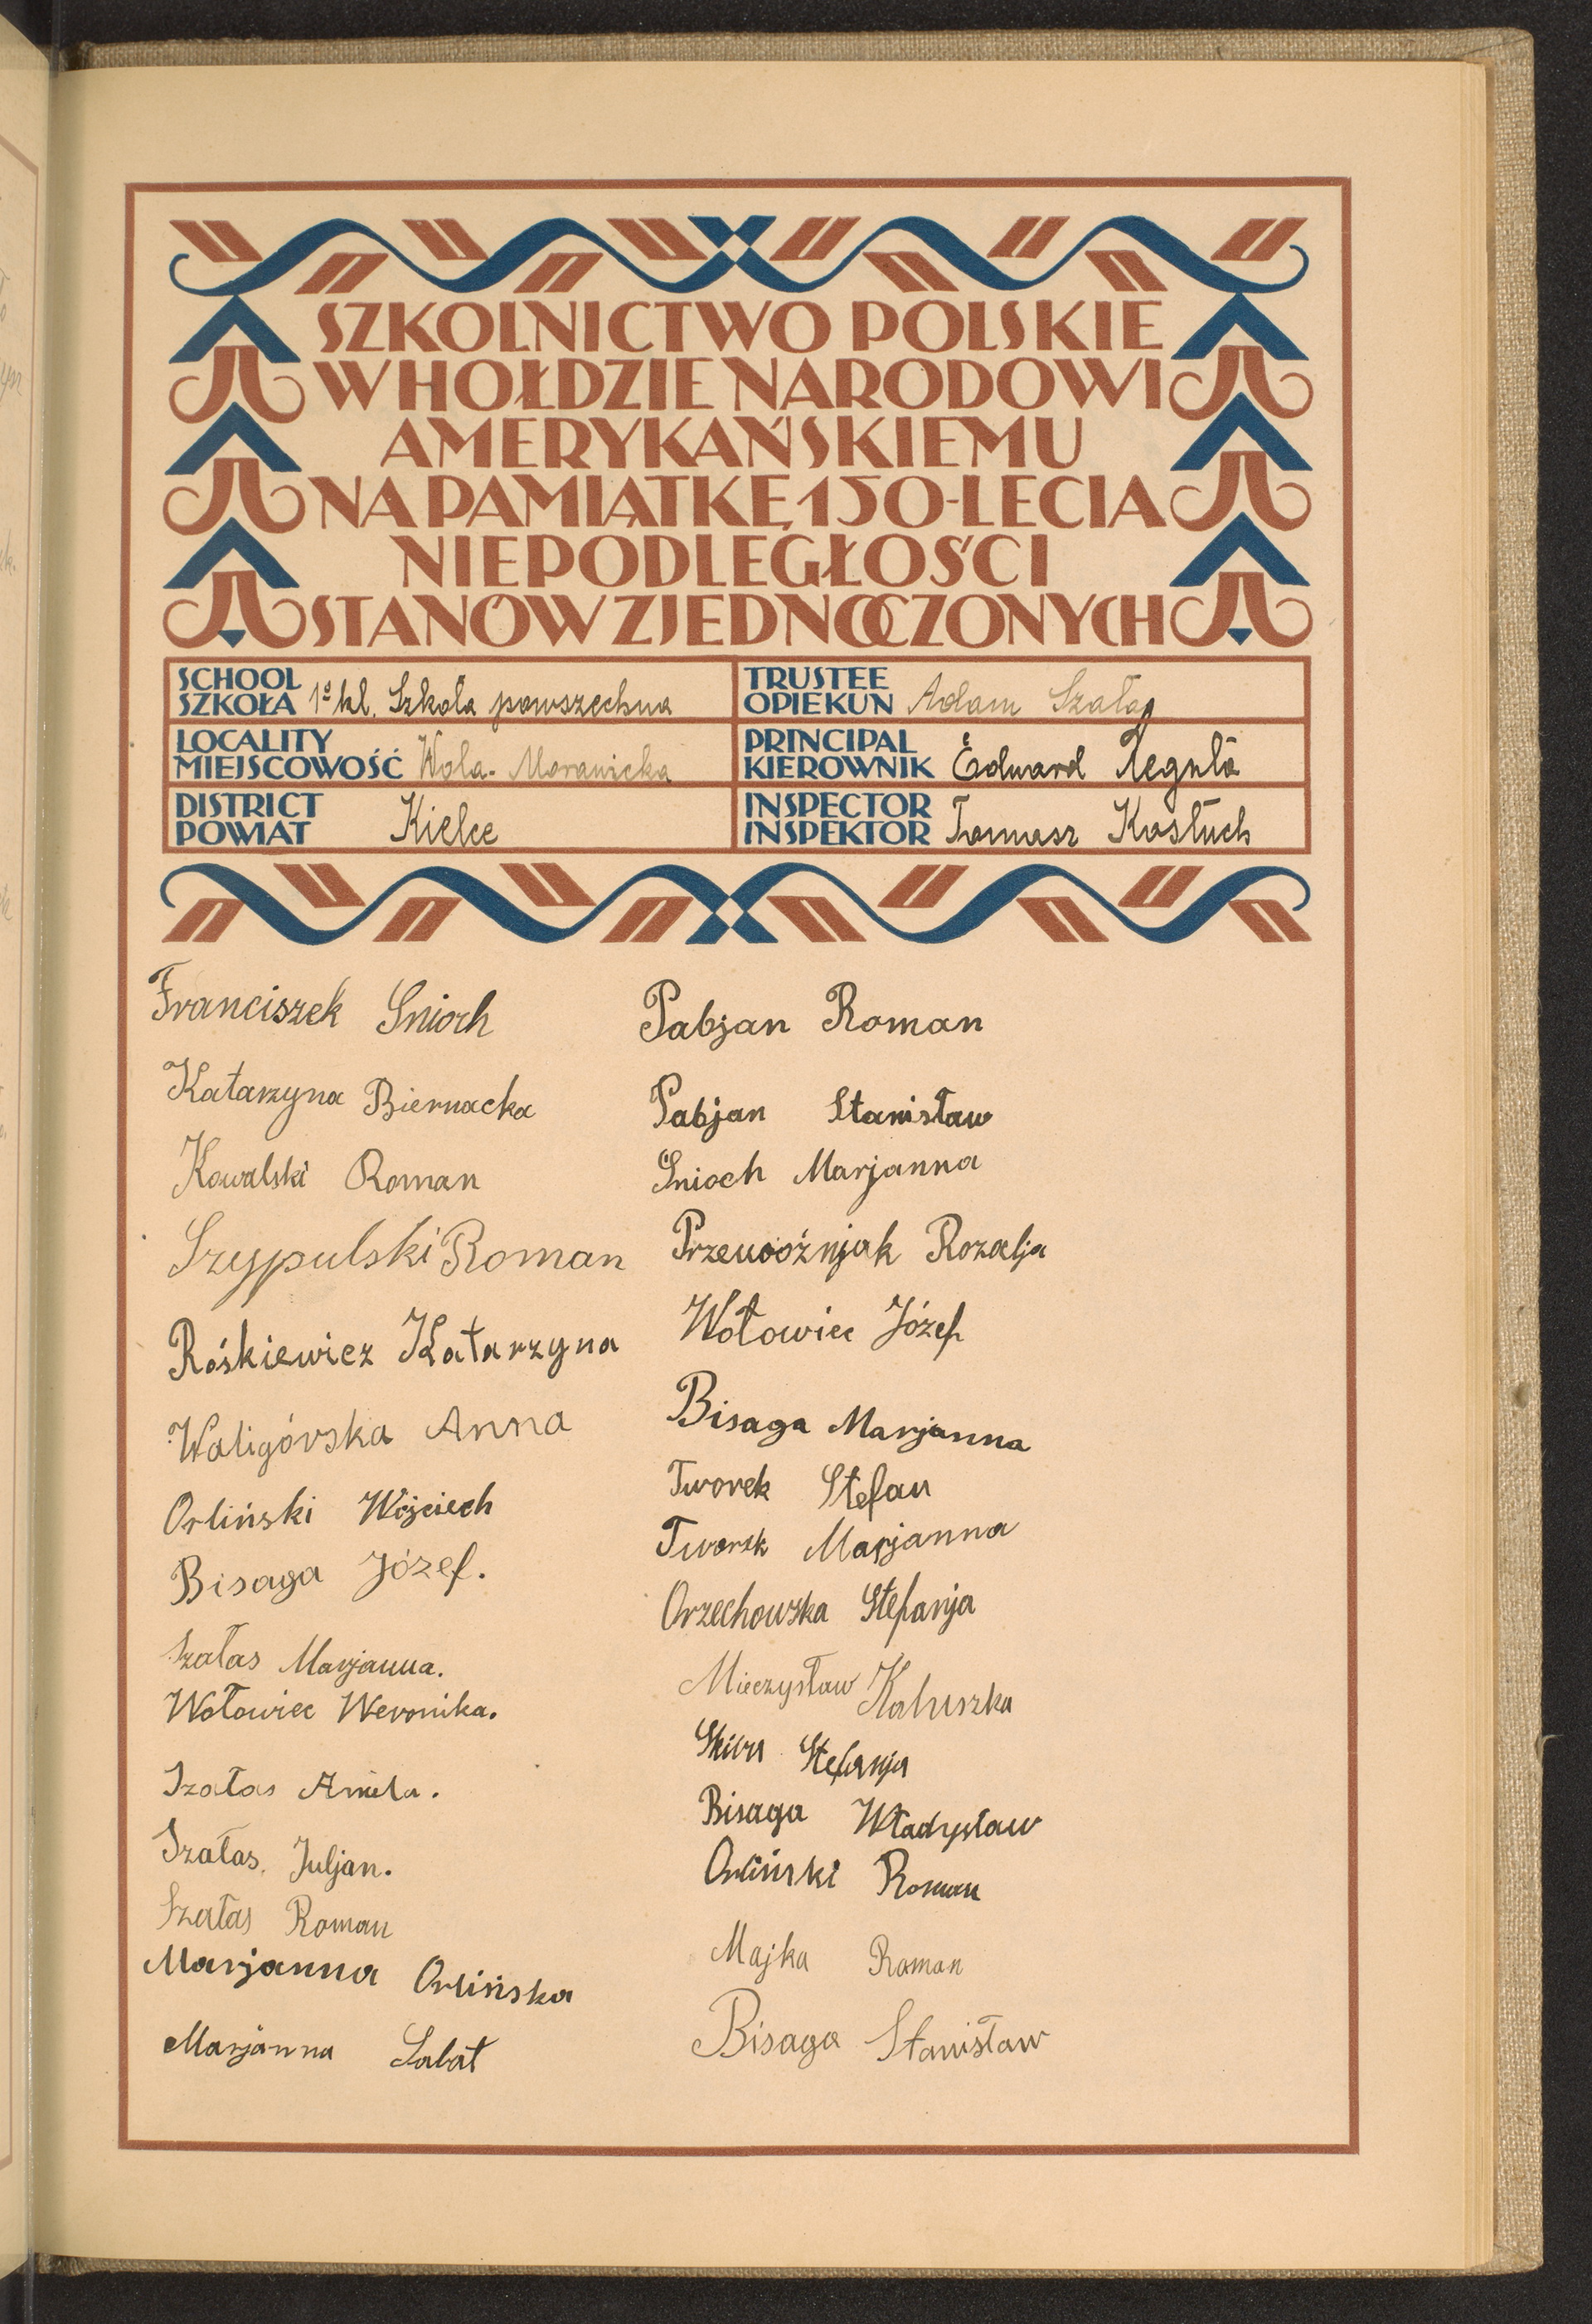 SZKOLNICTWO POLSKIE
W HOŁDZIE NARODOWI
AMERYKAŃSKIEMU
NA PAMIĄTKĘ 150-LECIA
NIEPODLEGŁOŚCI
STANÓW ZJEDNOCZONYCH
SCHOOL
SZKOŁA 1º kl. Szkoła powszechna
TRUSTEE
OPIEKUN Adam Szałas
LOCALITY
MIEJSCOWOŚĆ Wola-Morawicka
PRINCIPAL
KIEROWNIK Edward Reguła
DISTRICT
POWIAT Kielce
INSPECTOR
INSPEKTOR Tomasz Kosłuch
Franciszek Gnioch
Katarzyna Biernacka
Kowalski Roman
Szypulski Roman
Rośkiewicz Katarzyna
Waligórska Anna
Orliński Wojciech
Bisaga Józef.
Szałas Marjanna.
Wołowiec Weronika.
Szałas Aniela.
Szałas Juljan.
Szałas Roman
Marjanna Orlińska
Marjanna Sabat
Pabjan Roman
Pabjan Stanisław
Gnioch Marjanna
Przewoźnjak Rozalja
Wołowiec Józef
Bisaga Marjanna
Tworek Stefan
Tworek Marjanna
Orzechowska Stefanja
Mieczysław Kaluszka
Skiba Stefanja
Bisaga Władysław
Orliński Roman
Majka Roman
Bisaga Stanisław